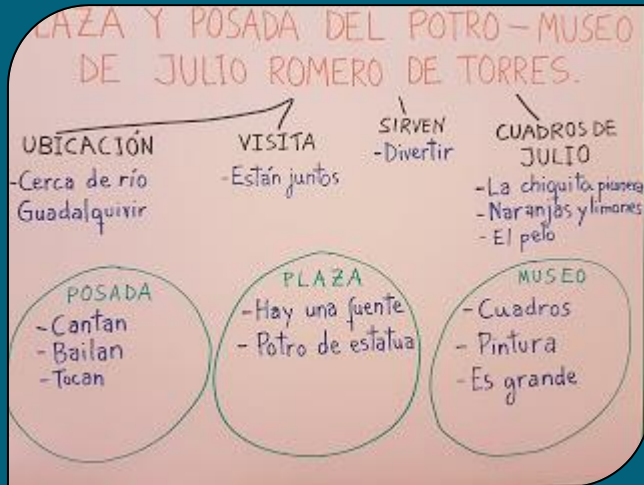 PLAZA Y POSADA DEL POTRO - MUSEO
DE JULIO ROMERO DE TORRES.
UBICACIÓN
-Cerca de río
Guadalquivir
VISITA
-Están juntos
SIRVEN
-Divertir
CUADROS DE
JULIO
-La chiquita piconera
-Naranjas y limones
- El pelo
POSADA
- Cantan
- Bailan
- Tocan
PLAZA
- Hay una fuente
- Potro de estatua
MUSEO
- Cuadros
- Pintura
- Es grande